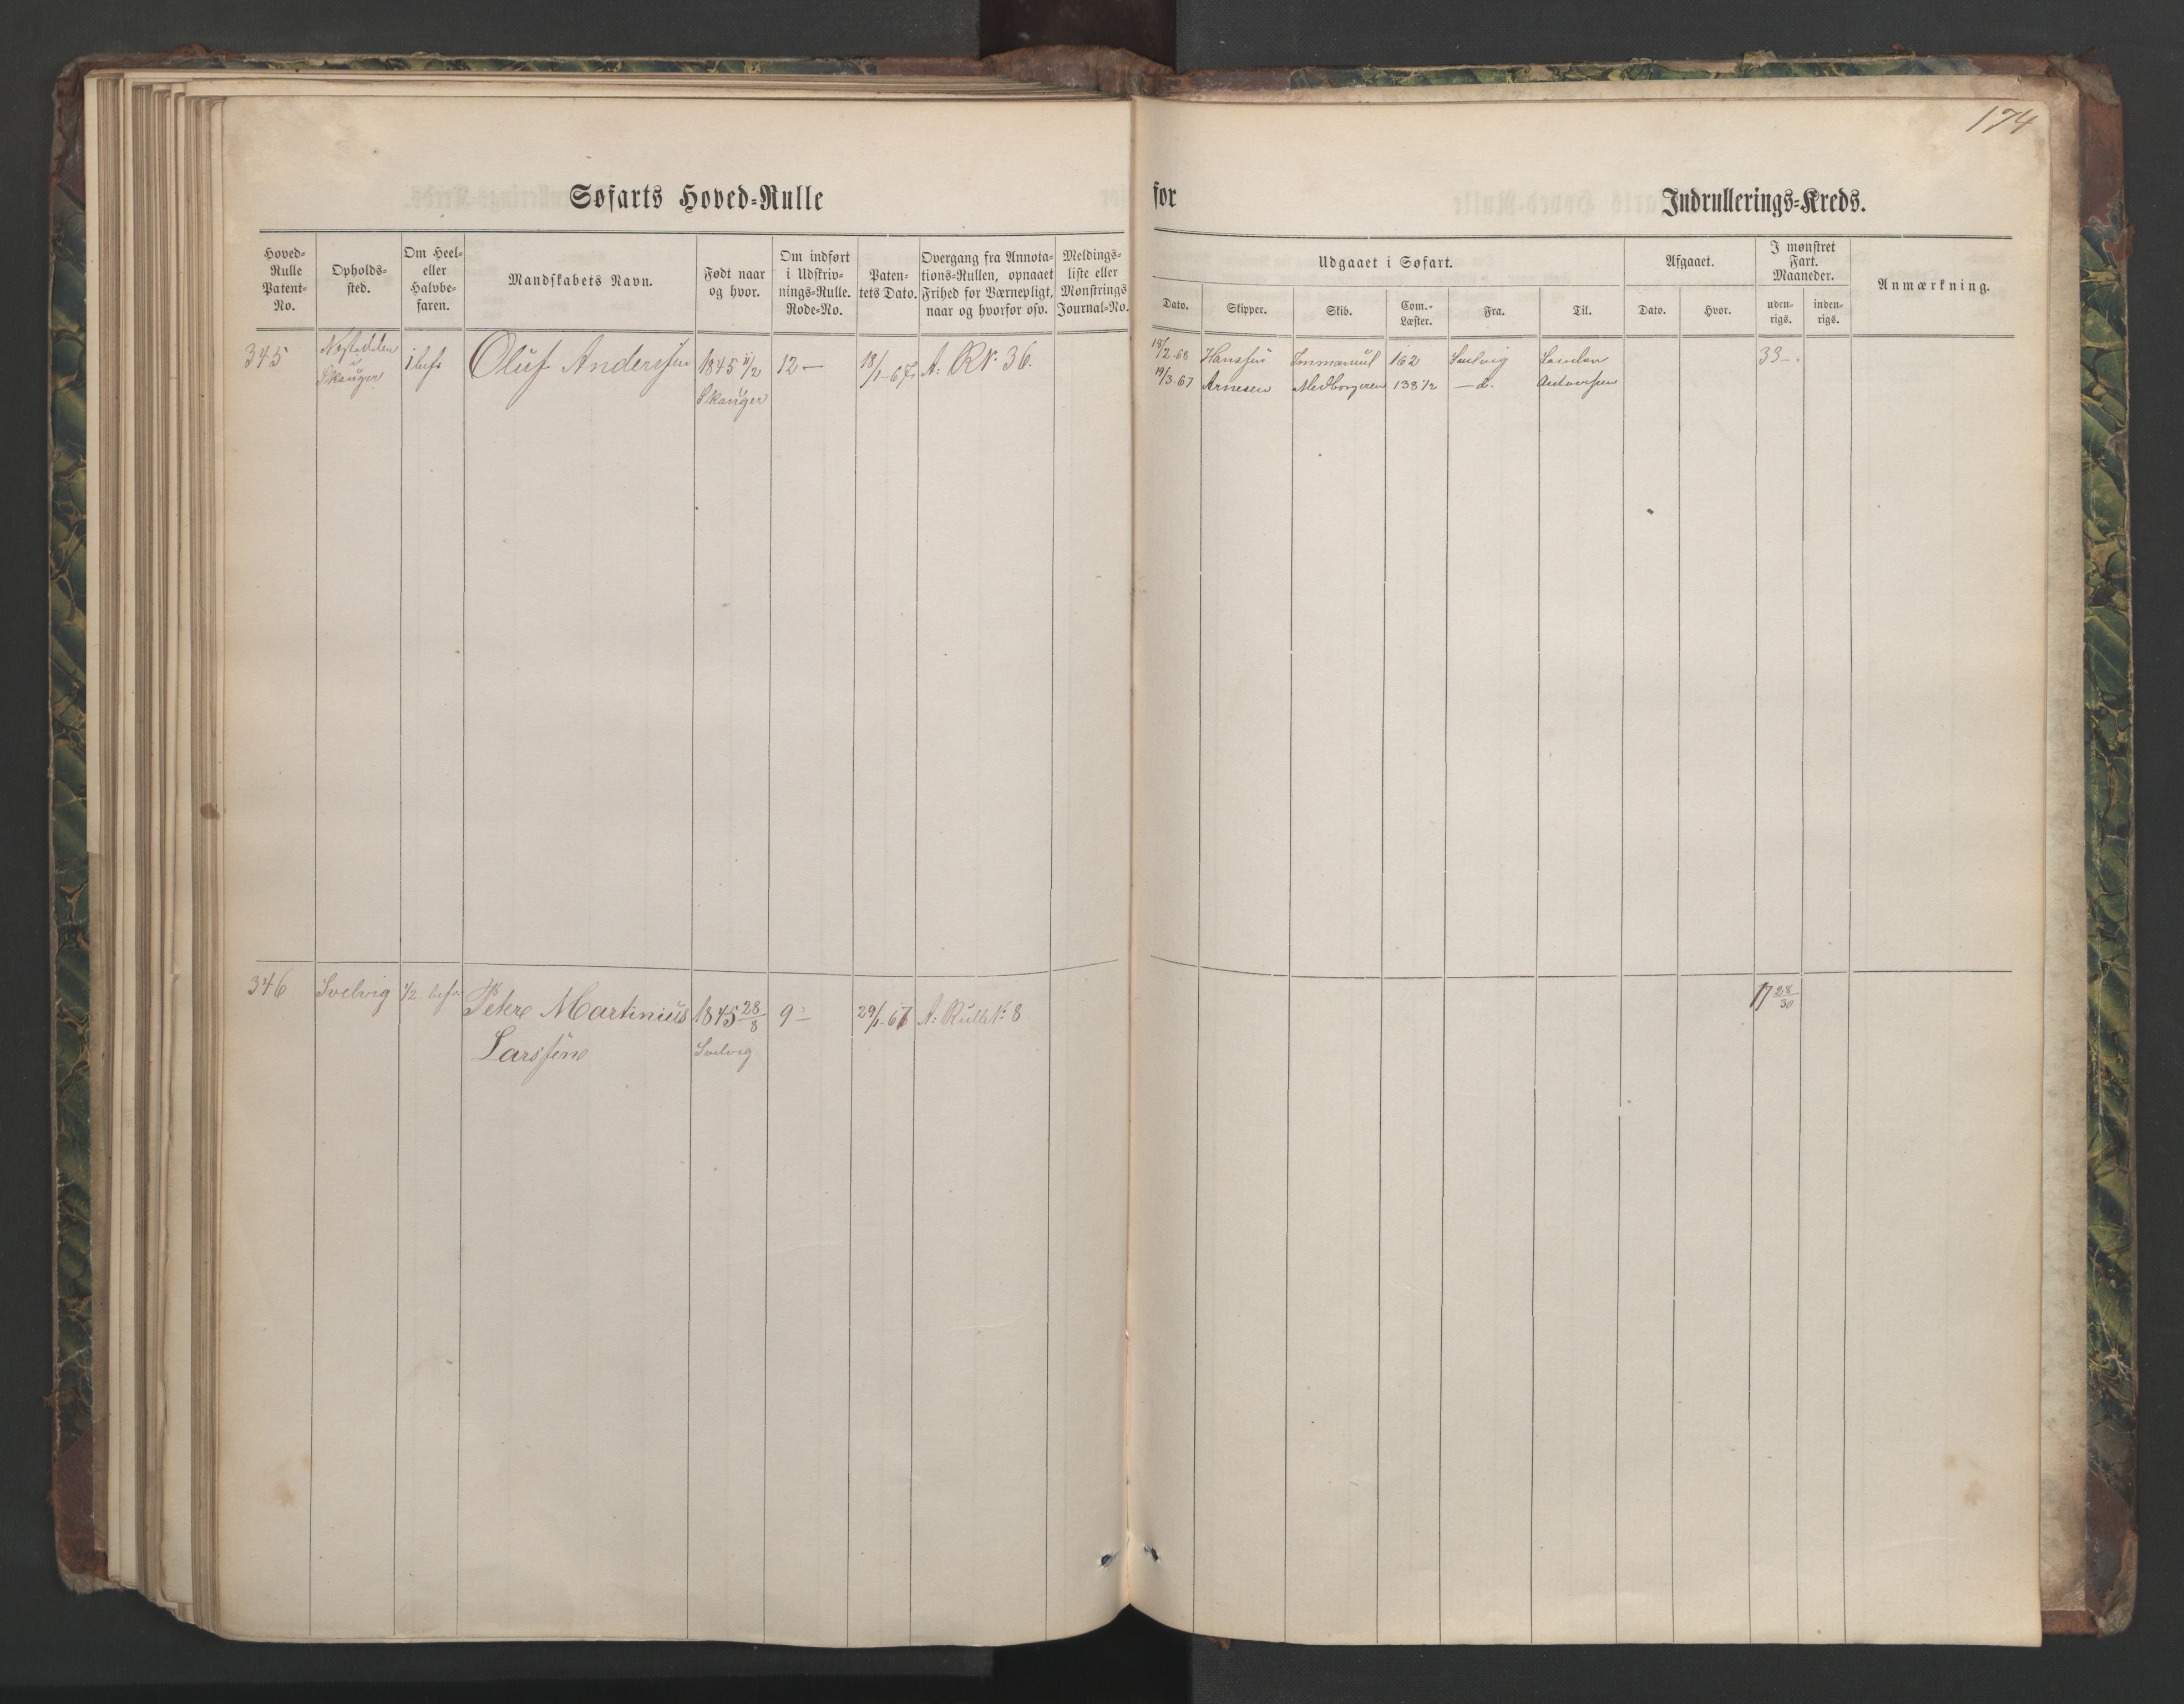 174
Søfarts Hoved=Rulle for Indrullerings=Kreds.
Hoved=
Rulle
Patent=
No.
Opholds=
sted.
Om Heel=
eller
Halvbe=
faren.
Mandskabets Navn.
Født naar
og hvor.
Om indført
i Udskriv=
nings=Rulle.
Rode=No.
Paten=
tets Dato.
Overgang fra Annota=
tions=Rullen, opnaaet
Frihed for Værnepligt,
naar og hvorfor osv.
Meldings=
liste eller
Mønstrings
Journal=No.
Udgaaet i Søfart.
Dato.
Skipper.
Skib.
Com.=
Læster.
Fra.
Til.
Afgaaet.
Dato.
Hvor.
I mønstret
Fart.
Maaneder.
uden=
rigs.
inden=
rigs.
Anmærkning.
345
Skauger
Oluf Anderssen
1845 11/2
Skauger
12 —
18/1-67
A: RN. 36.
18/2-68 Hanssen Immanuel 162 Svelvig London
19/3-67 Arnesen Medborgeren 138 1/2 — d. Antverpen
33 —
346
Svelvig
1/2 bef.
Peter Martinius
Larssen
1845 28/8
Svelvig
9 —
29/1-67
A: Rulle N: 8
17 28/30